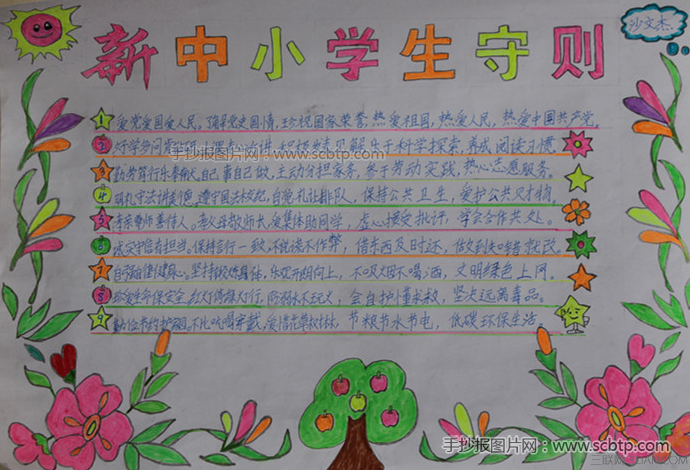 沙文杰
新中小学生守则
1 爱党爱国爱人民。了解党史国情,珍视国家荣誉,热爱祖国,热爱人民,热爱中国共产党。
2 好学多问 积极发表见解乐于科学探索,养成阅读习惯。
手抄报图片网:www.scbtp.com
3 勤劳笃行乐奉献。自己事自己做,主动分担家务,参于劳动实践,热心志愿服务。
4 明礼守法讲美德。遵守国法校纪,自觉礼让排队,保持公共卫生,爱护公共财物。
5 孝亲尊师善待人。孝父母敬师长,爱集体助同学,虚心接受批评,学会合作共处。
6 诚实守信有担当。保持言行一致,不说谎不作弊,借东西及时还,做到知错就改。
7 自强自律健身心。坚持锻炼身体,乐观开朗向上,不吸烟不喝酒,文明绿色上网。
8 珍爱生命保安全。红灯停绿灯行,防溺水不玩火,会自护懂求救,坚决远离毒品。
9 勤俭节约护家园。不比吃喝穿戴,爱惜花草树木,节粮节水节电,低碳环保生活。
手抄报图片网:www.scbtp.com